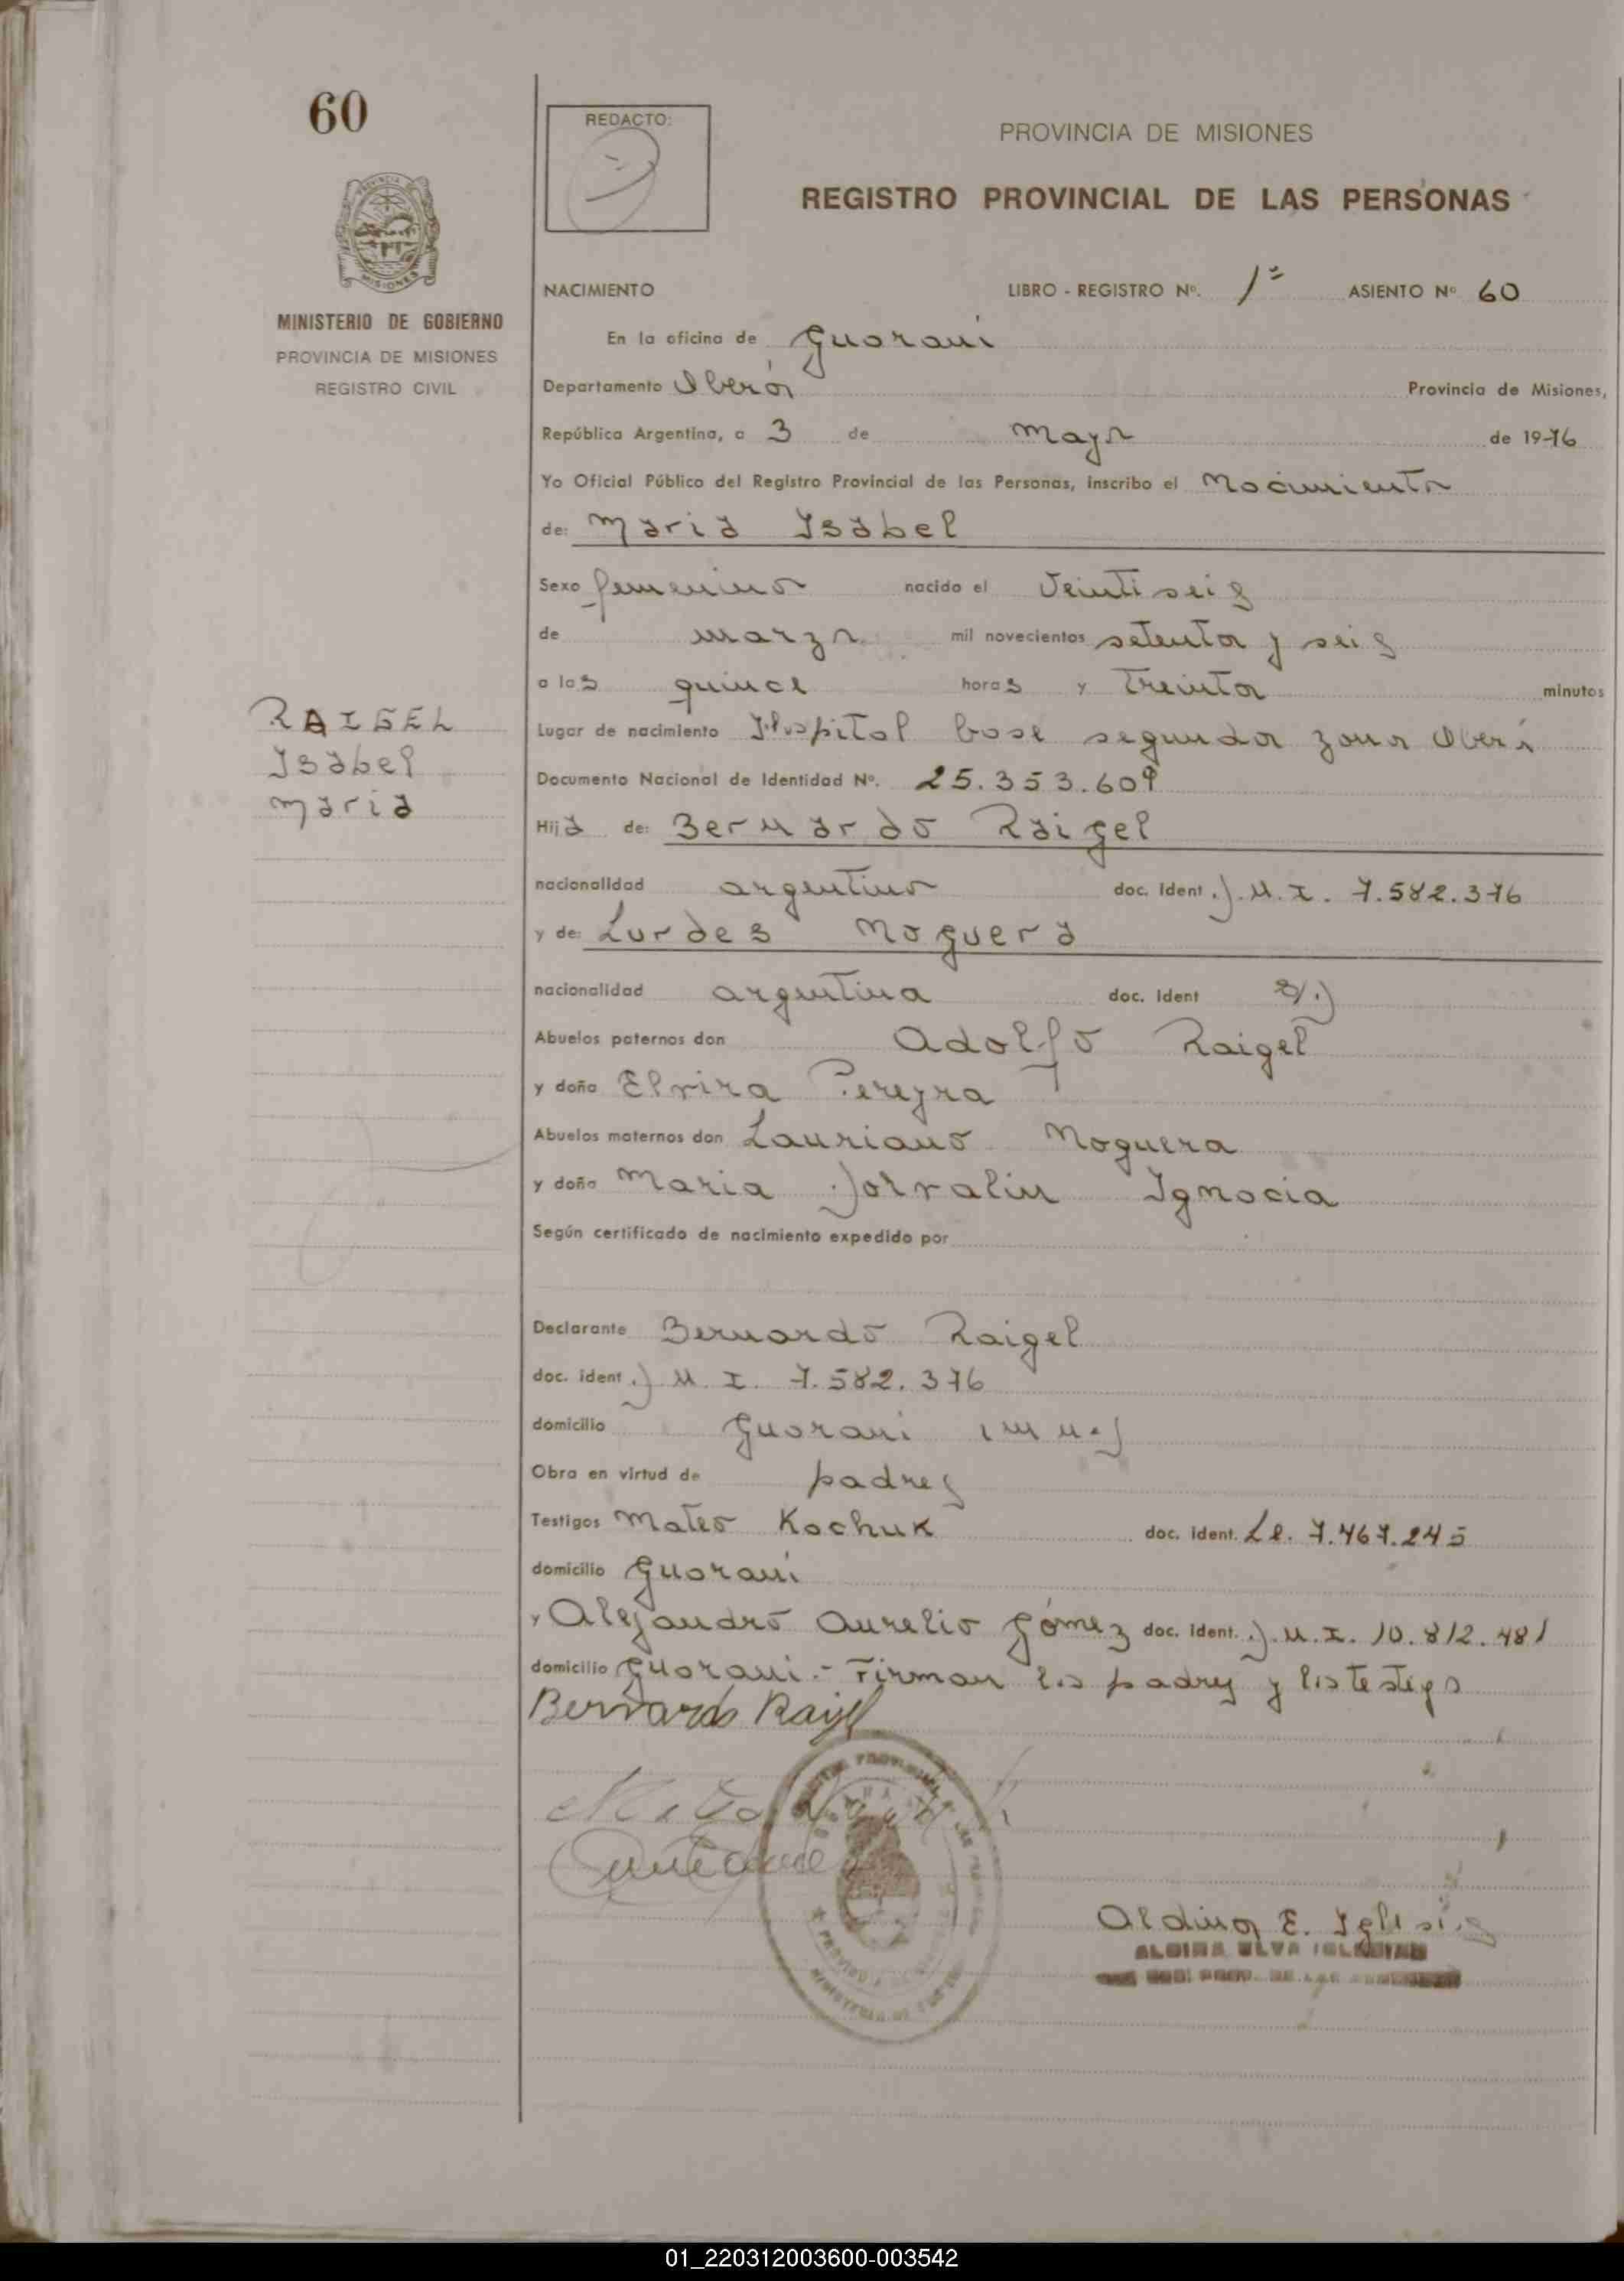 60
REDACTO:
PROVINCIA DE MISIONES
REGISTRO PROVINCIAL DE LAS PERSONAS
MINISTERIO DE GOBIERNO
PROVINCIA DE MISIONES
REGISTRO CIVIL
NACIMIENTO LIBRO - REGISTRO Nº. 1º ASIENTO Nº 60
En la oficina de Guarani
Departamento Oberá Provincia de Misiones,
República Argentina, a 3 de Mayo de 1976
Yo Oficial Público del Registro Provincial de las Personas, inscribo el Nacimiento
de: Maria Isabel
Sexo femenino nacido el Veintiseis
de marzo mil novecientos setenta y seis
a las quince horas y Treinta minutos
RAIGEL
Isabel
Maria
Lugar de nacimiento Hospital base segunda zona Oberá
Documento Nacional de Identidad Nº. 25.353.609
Hija de: Bernardo Raigel
nacionalidad argentino doc. Ident D.N.I. 7.582.376
y de: Lurdes Noguera
nacionalidad argentina doc. Ident
Abuelos paternos don Adolfo Raigel
y doña Elvira Pereyra
Abuelos maternos don Lauriano Noguera
y doña Maria Ignacia
Según certificado de nacimiento expedido por
Declarante Bernardo Raigel
doc. ident D.N.I. 7.582.376
domicilio Guarani
Obra en virtud de padres
Testigos Mateo Kachuk doc. Ident. L.E. 7.467.245
domicilio Guarani
y Alejandro Aurelio Gómez doc. Ident. D.N.I. 10.812.481
domicilio Guarani.- Firman los padres y los testigos
Bernardo Raigel
Aldina E. Iglesias
ALDINA ELVA IGLESIAS
01_220312003600-003542